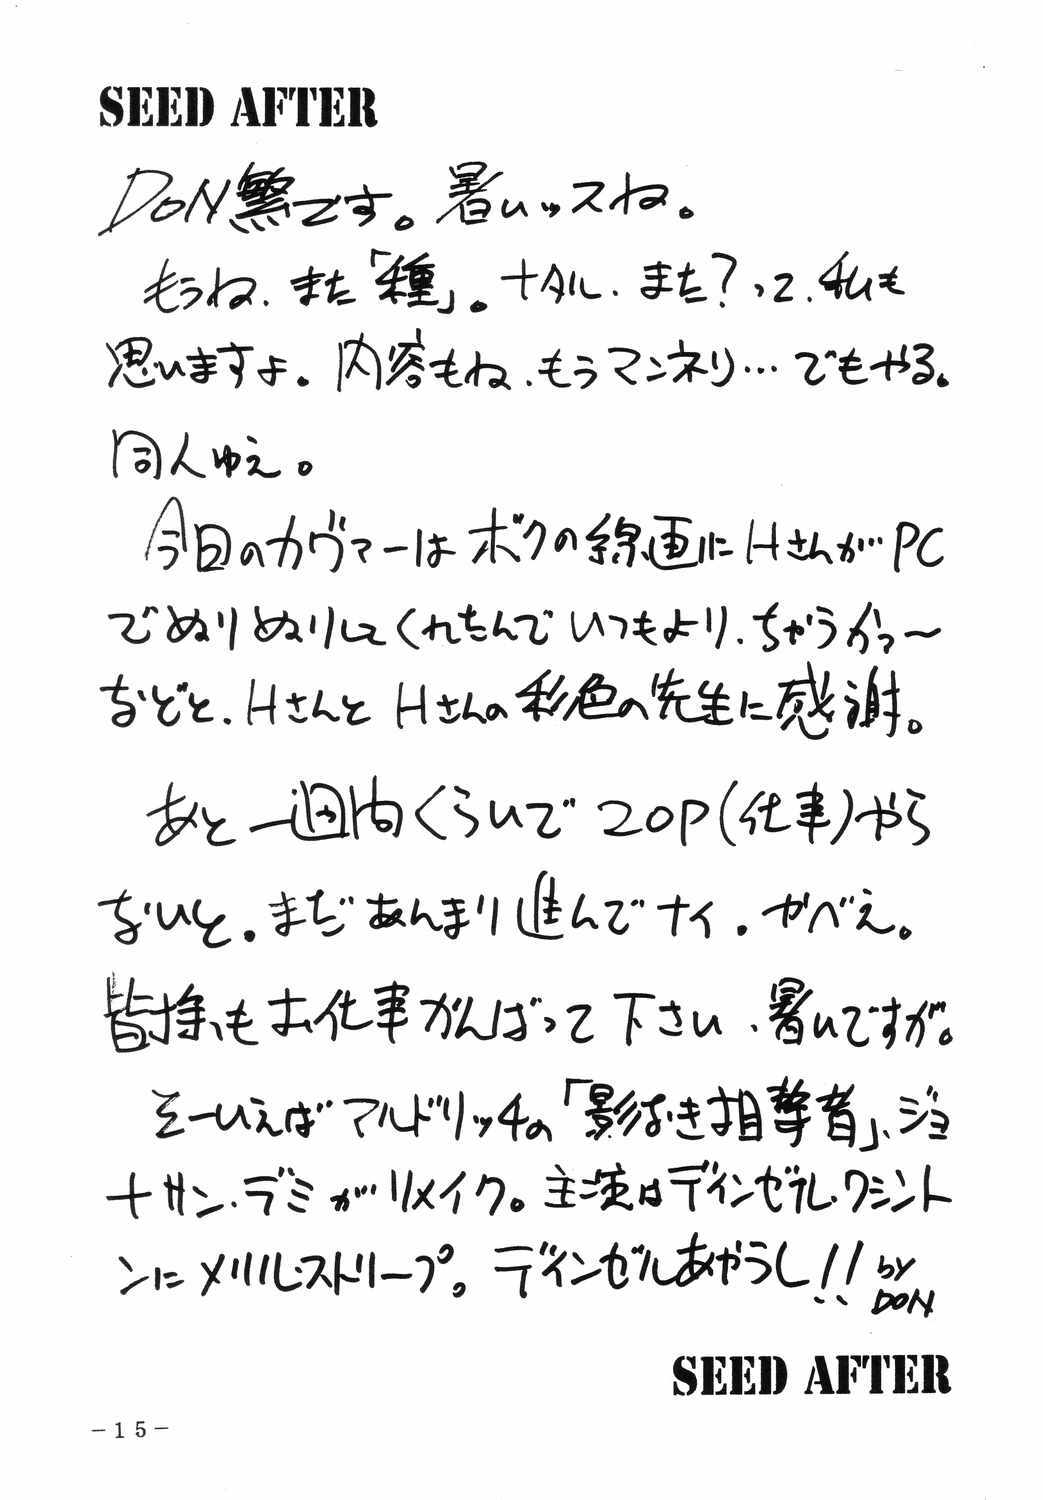 SEED AFTER
DON繁です。暑いッスね。
もうね、また「種」。ナタル、また?って、私も
思いますよ。内容もね、もうマンネリ…でもやる。
同人ゆえ。
今回のカヴァーはボクの線画にHさんが…PC
でぬりぬりしてくれたんでいつもより、ちゃうかっ〜
などと、HさんとHさんの彩色の先生に感謝。
あと一週間くらいで20P(仕事)やら
ないと。まだあんまり進んでナイ。がべえ。
皆様もお仕事がんばって下さい、暑いですが。
そーいえばマルドリッチの「影なき狙撃者」、ジョ
ナサン・デミがリメイク。主演はディンゼル・ワシント
ンにメリル・ストリープ。ディンゼルあやうし!!BY
DON
SEED AFTER
-15-